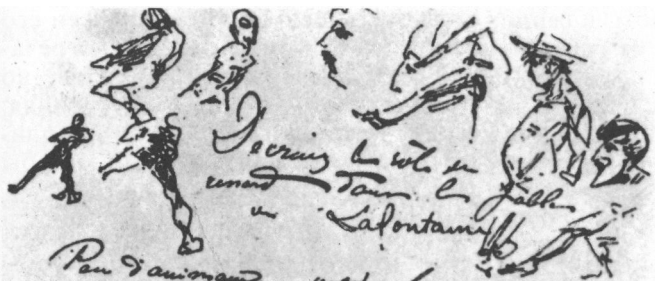 le rôle du
renard dans les fables
de Lafontaine
Peu d'animaux